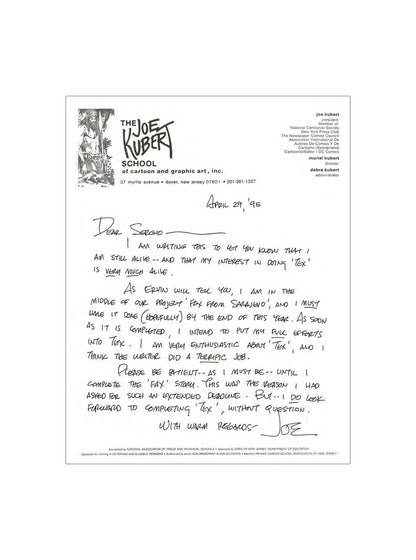 THE JOE
KUBERT
SCHOOL
of cartoon and graphic art, inc.
37 myrtle avenue • dover, new jersey 07801 • 201-361-1327
joe kubert
president
Member of:
National Cartoonist Society
New York Press Club
The Newspaper Comics Council
Association International De
Comics Y De
Cartoons (Switzerland)
Cartoonist/Editor DC Comics
muriel kubert
director
debra kubert
administrator
APRIL 29, '95
DEAR SERGIO
I AM WRITING THIS TO LET YOU KNOW THAT I
AM STILL ALIVE -- AND THAT MY INTEREST IN DOING 'TEX'
IS VERY MUCH ALIVE.
AS ERVIN WILL TELL YOU, I AM IN THE
MIDDLE OF OUR PROJECT 'FAX FROM SARAJEVO', AND I MUST
HAVE IT DONE (HOPEFULLY) BY THE END OF THIS YEAR. AS SOON
AS IT IS COMPLETED, I INTEND TO PUT MY FULL EFFORTS
INTO TEX. I AM VERY ENTHUSIASTIC ABOUT 'TEX', AND I
THINK THE WRITER DID A TERRIFIC JOB.
PLEASE BE PATIENT -- AS I MUST BE -- UNTIL I
COMPLETE THE 'FAX' STORY. THIS WAS THE REASON I HAD
ASKED FOR SUCH AN EXTENDED DEADLINE. BUT -- I DO LOOK
FORWARD TO COMPLETING 'TEX', WITHOUT QUESTION.
WITH WARM REGARDS-
JOE
Accredited by NATIONAL ASSOCIATION OF TRADE AND TECHNICAL SCHOOLS • Approved by STATE OF NEW JERSEY DEPARTMENT OF EDUCATION